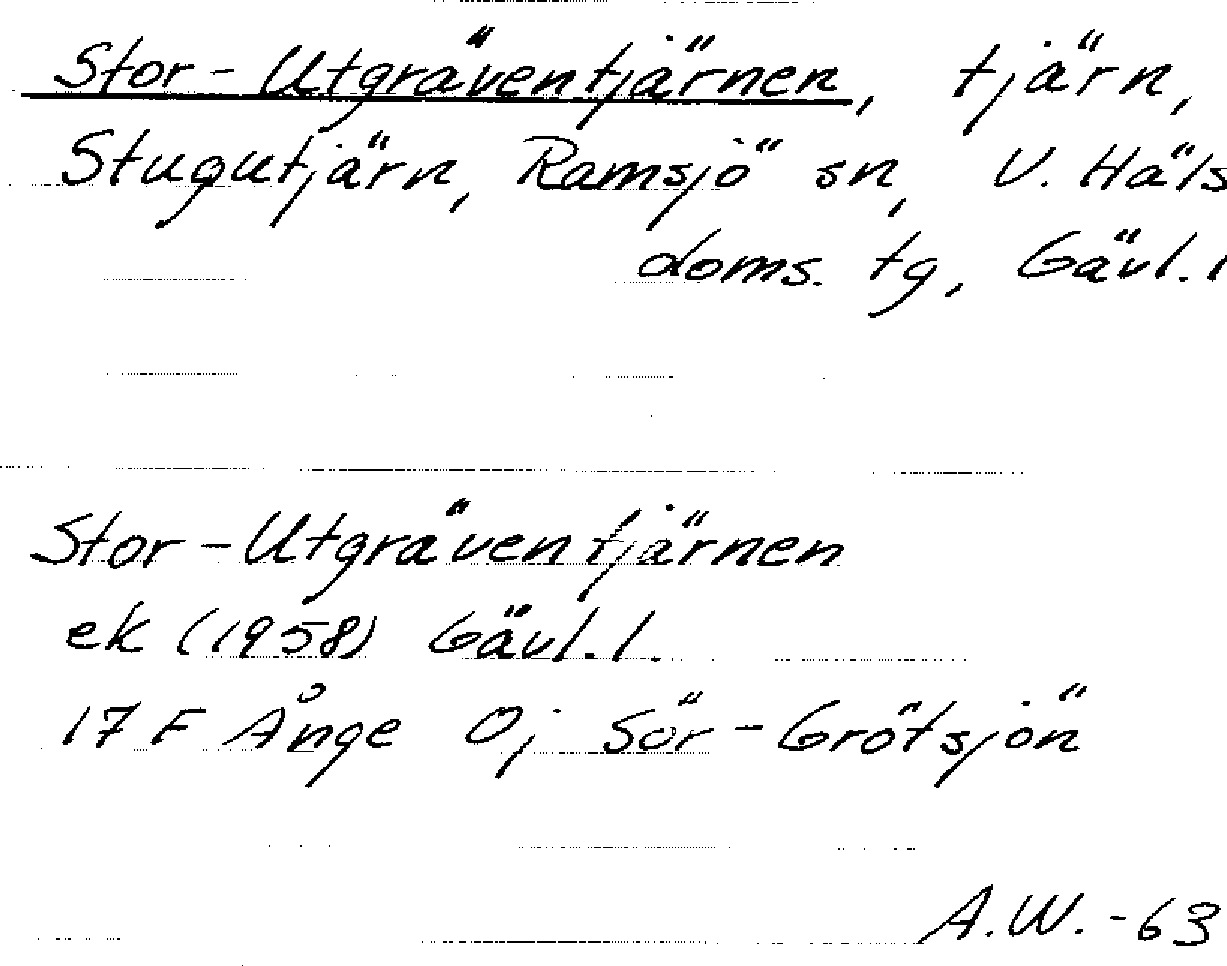 Stor-Utgräventjärnen, tjärn,
Stugutjärn, Ramsjö sn, V. Häls
doms. tg, Gävl. l
Stor-Utgräventjärnen
ek (1958) Gävl. l.
17 F Ånge 0j Sör-Grötsjön
A.W. -63